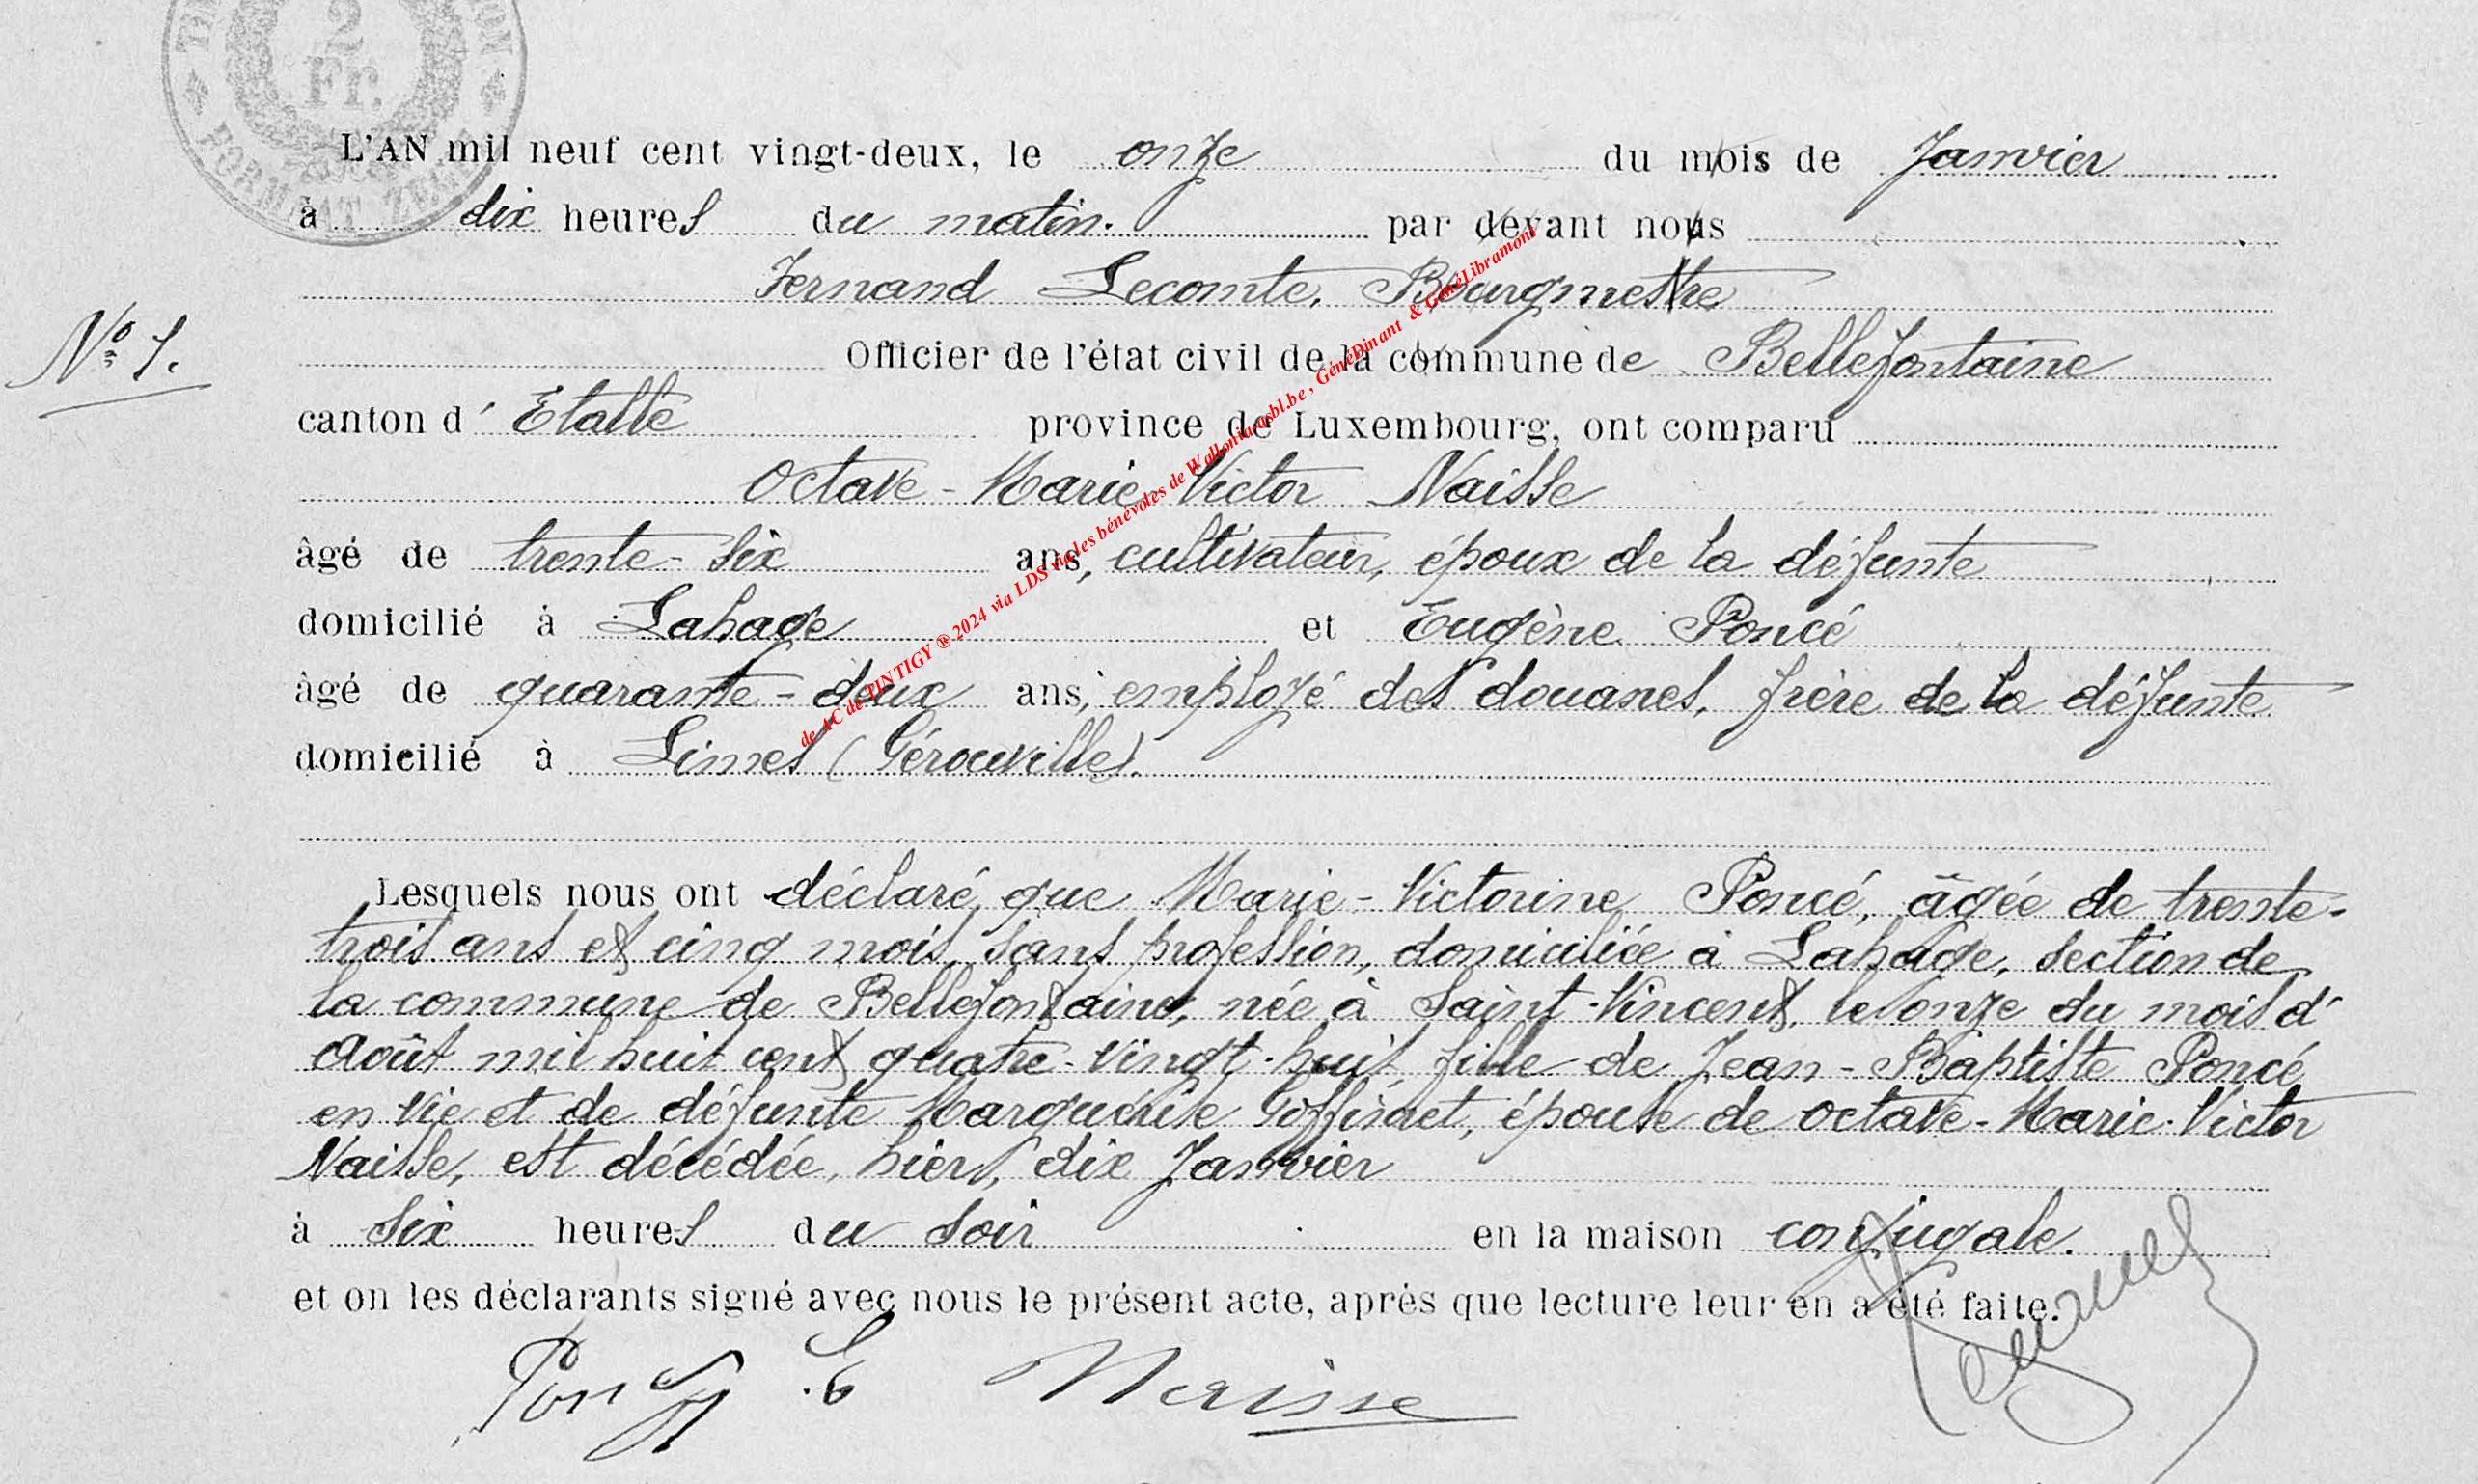 2
Fr.
FORMAT ZE
L'AN mil neuf cent vingt-deux, le onze du mois de Janvier
à dix heures du matin. par devant nous
Fernand Lecomte, Bourgmestre
N° 1.
Officier de l'état civil de la commune de Bellefontaine
canton d' Etalle province de Luxembourg, ont comparu
Octave-Marie-Victor Naisse
âgé de trente-six ans, cultivateur, époux de la défunte
domicilié à Lahage et Eugène Poncé
âgé de quarante-deux ans, employé des douanes, frère de la défunte
domicilié à Limes (Gérouville).
Lesquels nous ont déclaré que Marie-Victorine Poncé, âgée de trente-
trois ans et cinq mois, sans profession, domiciliée à Lahage, section de
la commune de Bellefontaine, née à Saint-Vincent, le onze du mois d'
Août mil huit cent quatre-vingt-huit, fille de Jean-Baptiste Poncé
en vie et de défunte Marguérite Goffinet, épouse de Octave-Marie-Victor
Naisse, est décédée, hier, dix Janvier
à six heures du soir en la maison conjugale.
et on les déclarants signé avec nous le présent acte, après que lecture leur en a été faite.
E Naisse
de AC de TINTIGY ® 2024 via LDS via les bénévoles de Wallonia.asbl.be, GénéDinant & GénéLibramont